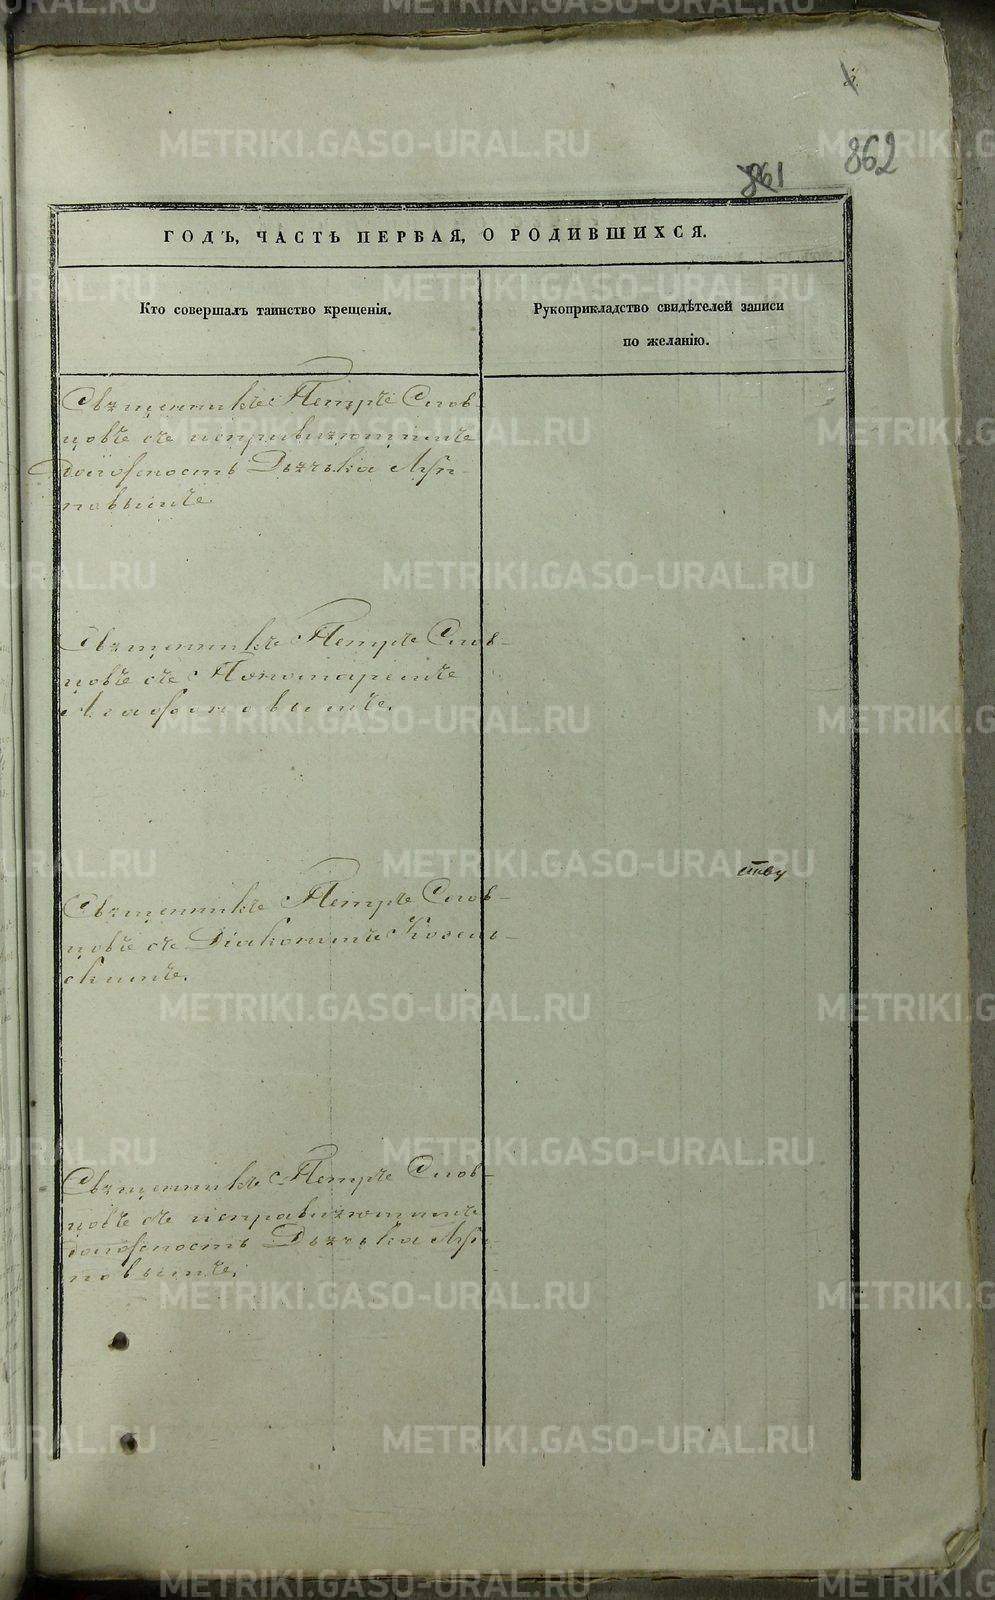 862
861
ГОДЪ, ЧАСТЬ ПЕРВАЯ, О РОДИВШИХСЯ.
Кто совершалъ таинство крещенія.
Рукоприкладство свидѣтелей записи
по желанію.
Священникъ Петръ Слов-
цовъ съ исправляющимъ
должность Дьячька
повымъ
Священникъ Петръ Слов-
цовъ съ Пономаремъ
Агафоновымъ.
ству
Священникъ Петръ Слов-
цовъ съ Діакономъ Козель-
скимъ.
Священникъ Петръ Слов-
цовъ съ исправляющимъ
должность Дьячька
повымъ.
METRIKI.GASO-URAL.RU